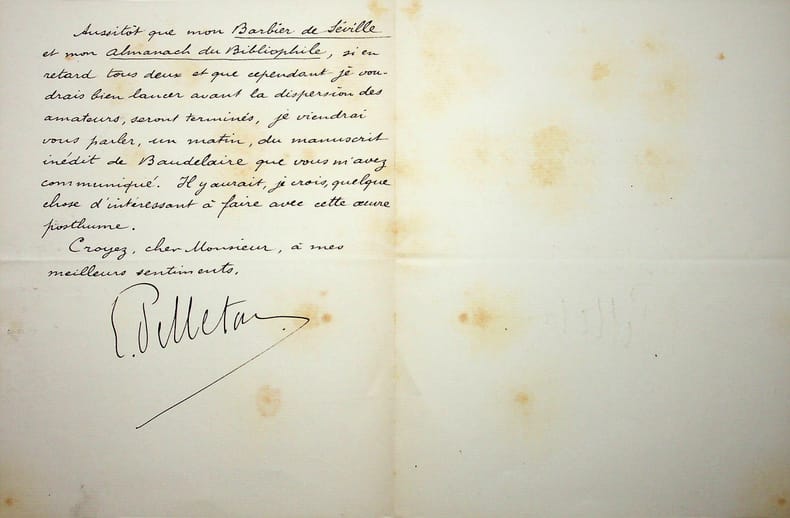 Aussitôt que mon Barbier de Séville
et mon Almanach du Bibliophile, si en
retard tous deux et que cependant je vou-
drais bien lancer avant la dispersion des
amateurs, seront terminés, je viendrai
vous parler, un matin, du manuscrit
inédit de Baudelaire que vous m'avez
communiqué. Il y aurait, je crois, quelque
chose d'intéressant à faire avec cette œuvre
posthume.
Croyez, cher Monsieur, à mes
meilleurs sentiments.
E. Pelletan.